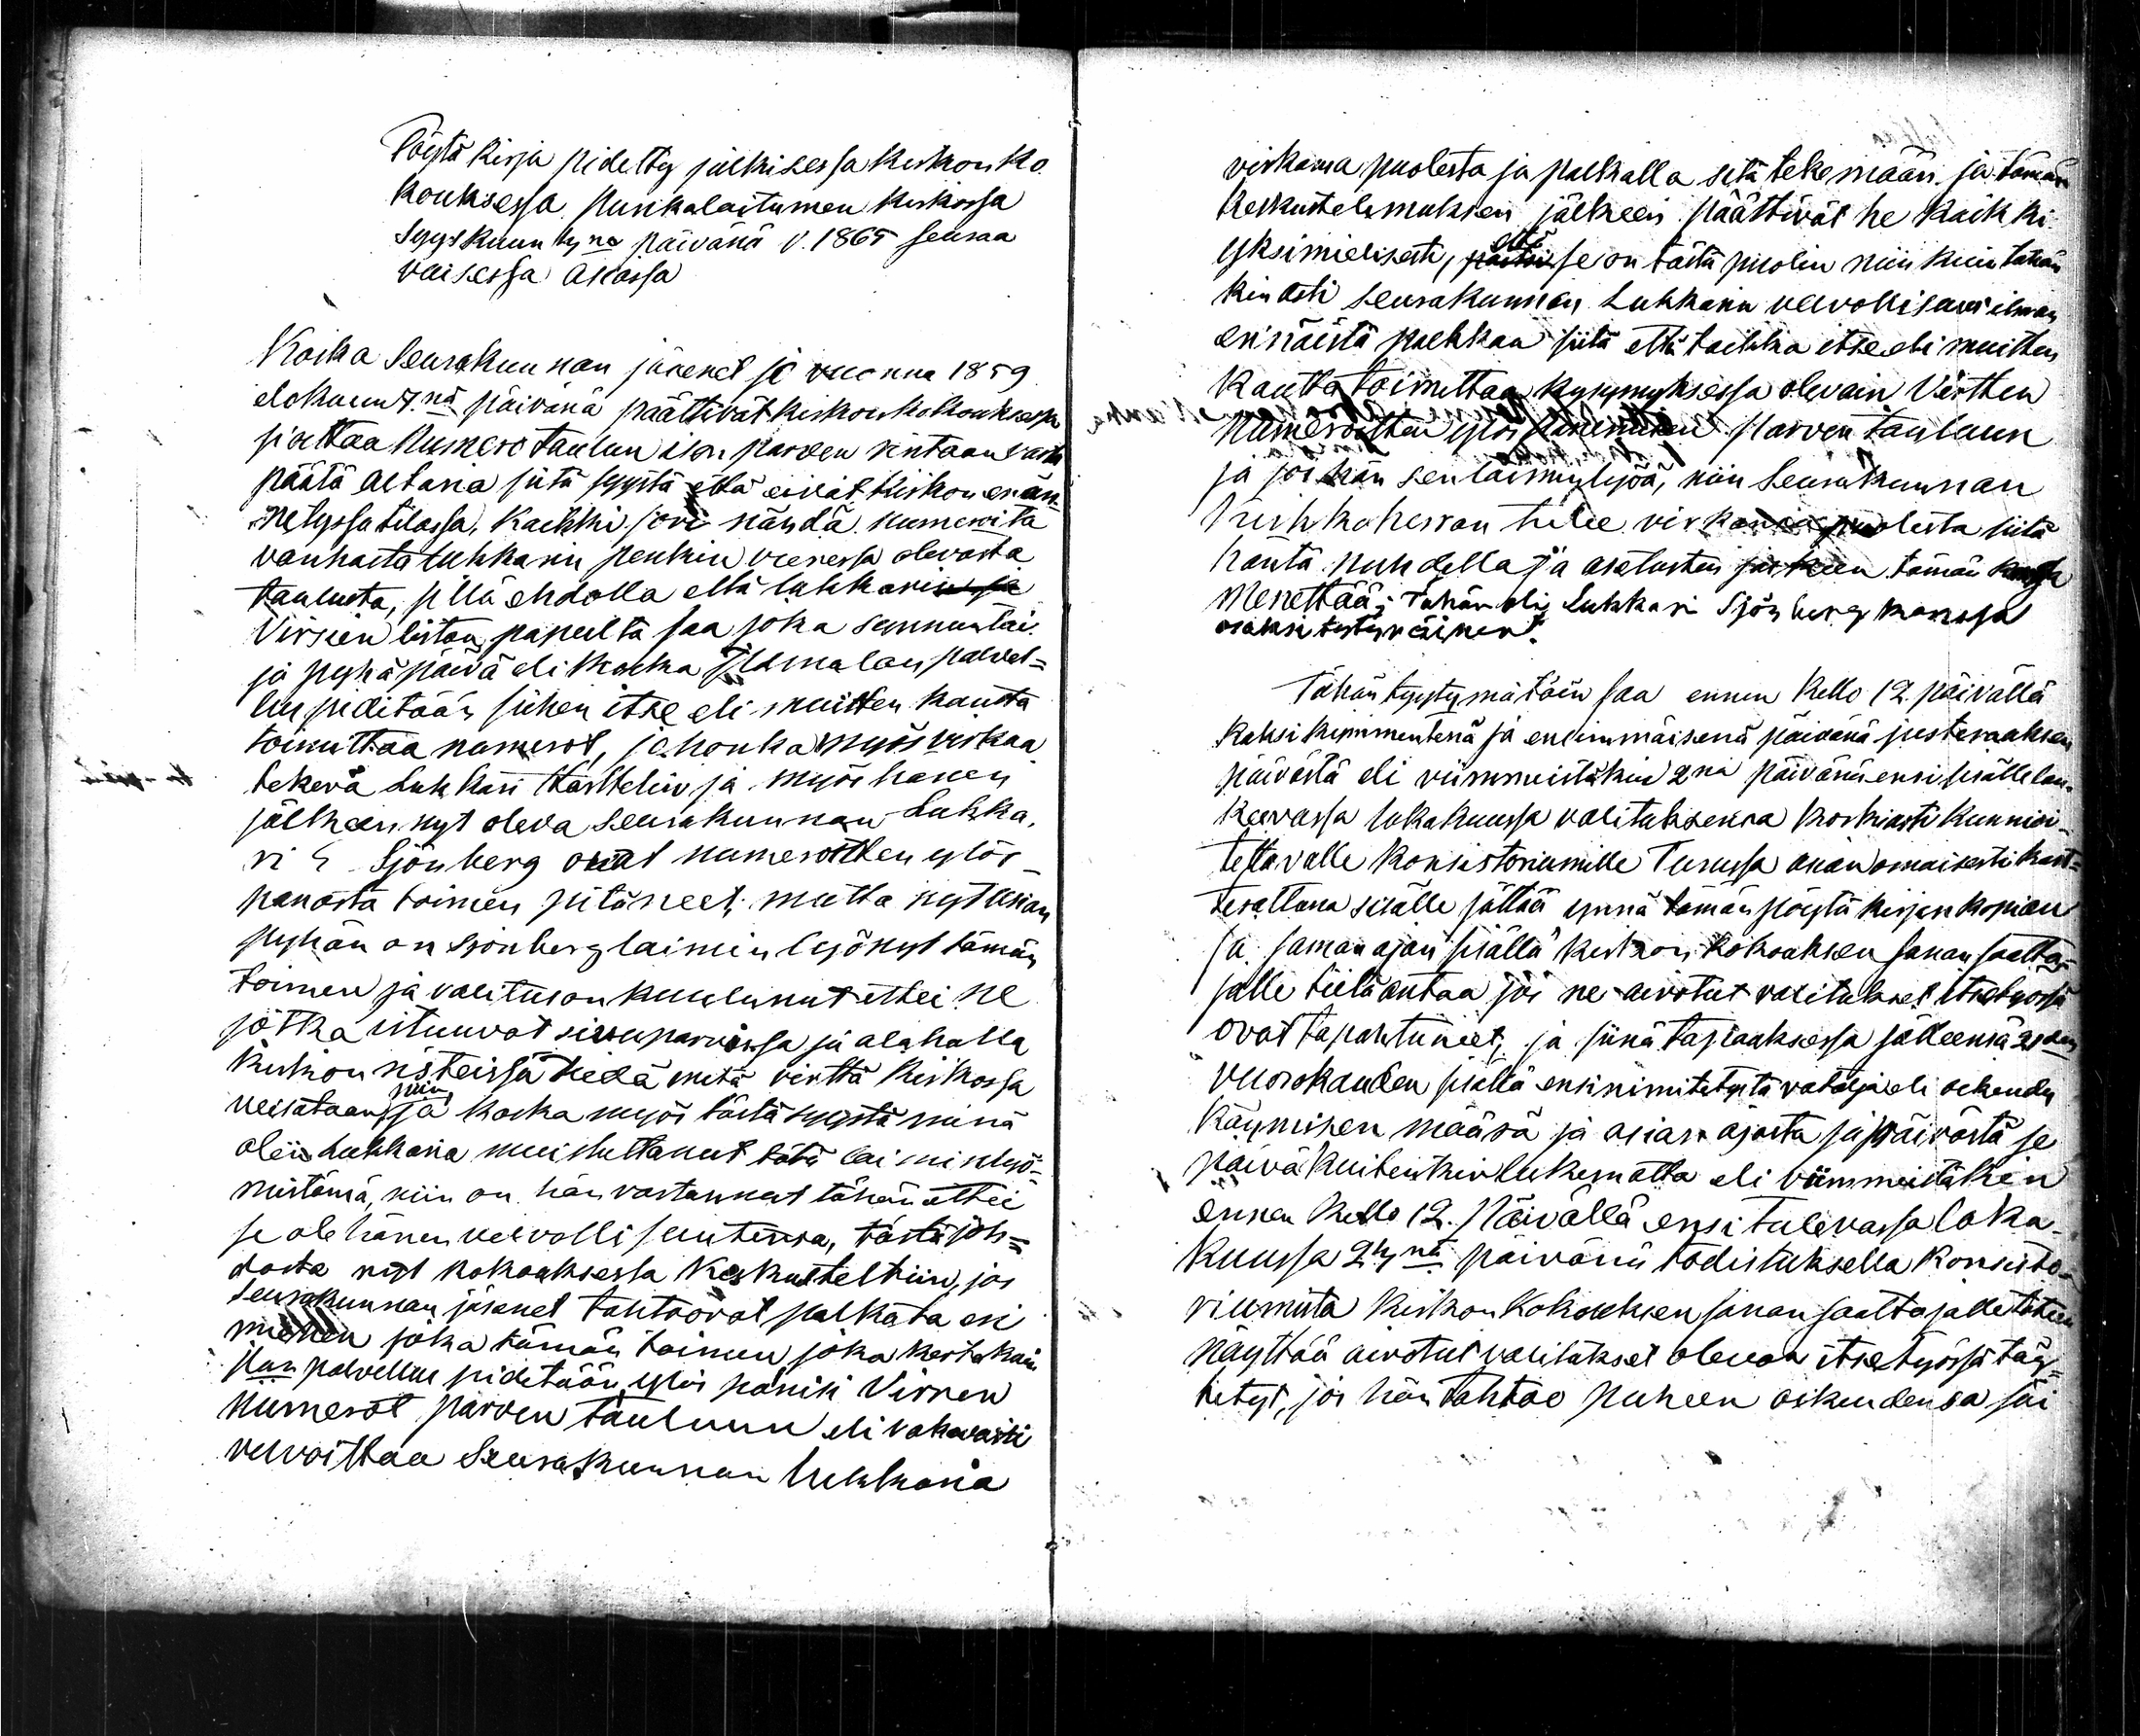 Pöytä kirja pidetty julkisessa kirkon ko.
kouksessa Punkalaitumen kirkossa
Syyskuun 4 nä päivänä v. 1865 seuraa
vaisessa asiassa
Koska Seurakunnan jäsenet jo vuonna 1859
elokuun 7. nä päivänä päättivät kirkonkokouksessa
panettaa Numero taulun alan parven rintaan vasta
päätä Altaria siitä syystä että eivät kirkon enän-
netyssä tilassa, kaikki sovi nähdä numeroita
vanhasta lukkarin penkin vieressä olevasta
taulusta, sillä ehdolla että lukkari
Virsien listan paperilta saa joka sunnuntai.
ja pyhäpäivä eli koska Jumalan palvel=
lus piditään siihen itse eli muitten kautta
toimittaa numerot, jahonka myös virkaa
tekevä Lukkari ja myös hänen
jälkeen nyt oleva Seurakunnan Lukka.
ri Sjönberg ovat numeroitten ylös-
panosta toimen pitäneet; mutta nyt
pyhän on Sjönberg laimin lyönyt tämän
toimen ja valitus on kuulunut ettei ne
jotka istuuvat sivuparvissa ja alahalla
kirkon risteissä tiedä mitä virttä kirkossa
veisataan, niin ja koska myös tästä syystä minä
olen lukkaria muistuttanut tätä laiminlyö-
mistänsä, niin on hän vastannut tähän ettei
se ole hänen velvollisuutensa, tästä joh=
dosta nyt kokouksessa keskusteltiin, jos
Seurakunnan jäsenet tahtoovat palkata eri
miehen joka tämän toimen joka kerta kuin
Jlan palvellus pidetään, ylös panisi Virren
Numerot parven tauluun eli vakavasti
velvoittaa Seurakunnan lukkaria
virkansa puolesta ja palkalla sitä tekemään. ja tämän
keskustelemuksen jälkeen päättivät he kaikki
yksimielisesti, että se on tästä puolin niin kuin tähän
kin asti Seurakunnan Lukkarin velvollisuus ilman
erinäistä palkkaa siitä että taikka itse eli muitten
kautta toimittaa kysymyksessä olevain Virtten
Numeroitten ylös panemisen Parven tauluun
ja jos hän sen laiminlyöä, niin Seurakunnan
Kirkkoherran tulee virkansa puolesta siitä
häntä puhdella ja asetusten jälkeen tämän kanssa
Menettää; Tähän oli Lukkari Sjönberg kanssa
osaksi tyytyväinen.
Tähän tyytymätöin saa ennen kello 12 päivällä
kaksi kymmentenä ja ensimmäisenä päivänä justeerauksen
päivästä eli viimmeistäkin 2 nä päivänä ensi sisälle lan-
keevassa lokakuussa valituksensa korkiasti kunnioi-
tettavalle Konsistoriumille Turussa asianomaisesti kart=
teerattuna sisälle jättää ynnä tämän pöytä kirjan kopian
ja saman ajan sisällä kirkon kokouksen sanan saatta-
jalle tietä antaa jos ne aivotut valitukset itse työssä
ovat tapahtuneet, ja siinä tapauksessa jälleensä 21 den
vuorokauden sisällä ensinimitetystä valitus eli oikeuden
käymisen määrä ja asian ajasta ja päivästä se
päivä kuitenkin lukematta eli viimmeistäkin
ennen kello 12. Päivällä ensi tulevassa loka-
kuussa 24 nä päivänä todistuksella Konsisto-
riumista kirkon kokouksen sanan saattajalle toteen
näyttää aivotut valitukset olevan itse työssä täy=
tetyt, jos hän tahtoo puheen oikeudensa säi